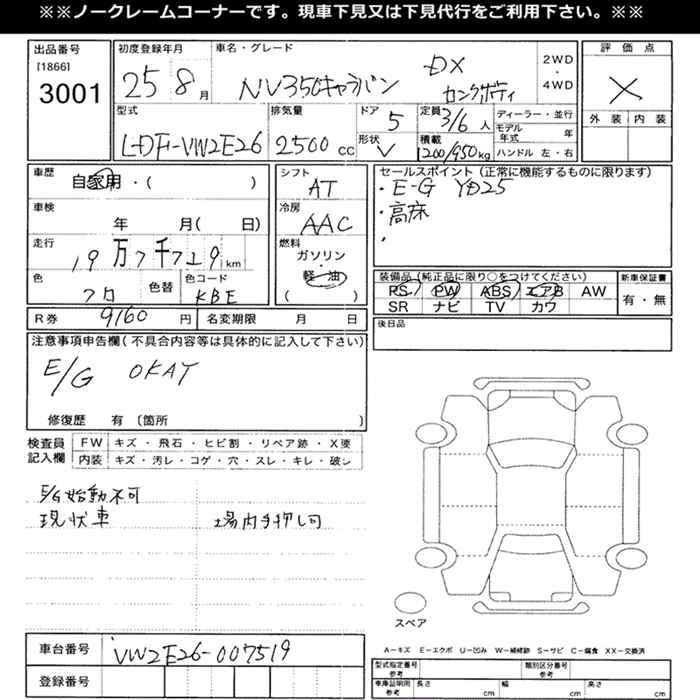 ※※ノークレームコーナーです。現車下見又は下見代行をご利用下さい。※※
出品番号
[1866]
3001
初度登録年月
25 8月
車名・グレード
NV350キャラバン
DX
ロングボディ
2WD
・
4WD
評価点
X
外装 内装
型式
LDF-VW2E26
排気量
2500 cc
ドア
5
形状
V
定員
3/6人
積載
1200/950kg
ディーラー・並行
モデル年式 年
ハンドル 左・右
車歴
自家用・( )
車検
年 月( 日)
走行
19万7千729km
色
クロ
色替
色コード
KBE
シフト
AT
冷房
AAC
燃料
ガソリン
・
軽油
( )
セールスポイント(正常に機能するものに限ります)
・E-G YD25
・高床
・
装備品(純正品に限り○をつけてください)
PS PW ABS エアB AW
SR ナビ TV カワ
新車保証書
有・無
R券 9160円
名変期限 月 日
後日品
注意事項申告欄(不具合内容等は具体的に記入して下さい)
E/G OKAY
修復歴 有〔箇所 〕
検査員記入欄
FW キズ・飛石・ヒビ割・リペア跡・X要
内装 キズ・汚レ・コゲ・穴・スレ・キレ・破レ
E/G始動不可
現状車 場内手押し可
スペア
車台番号 VW2E26-007519
登録番号
A-キズ E-エクボ U-凹み W-補修跡 S-サビ C-腐食 XX-交換済
型式指定番号
参考
類別区分番号
参考
車庫証明用
参考
長さ cm
幅 cm
高さ cm